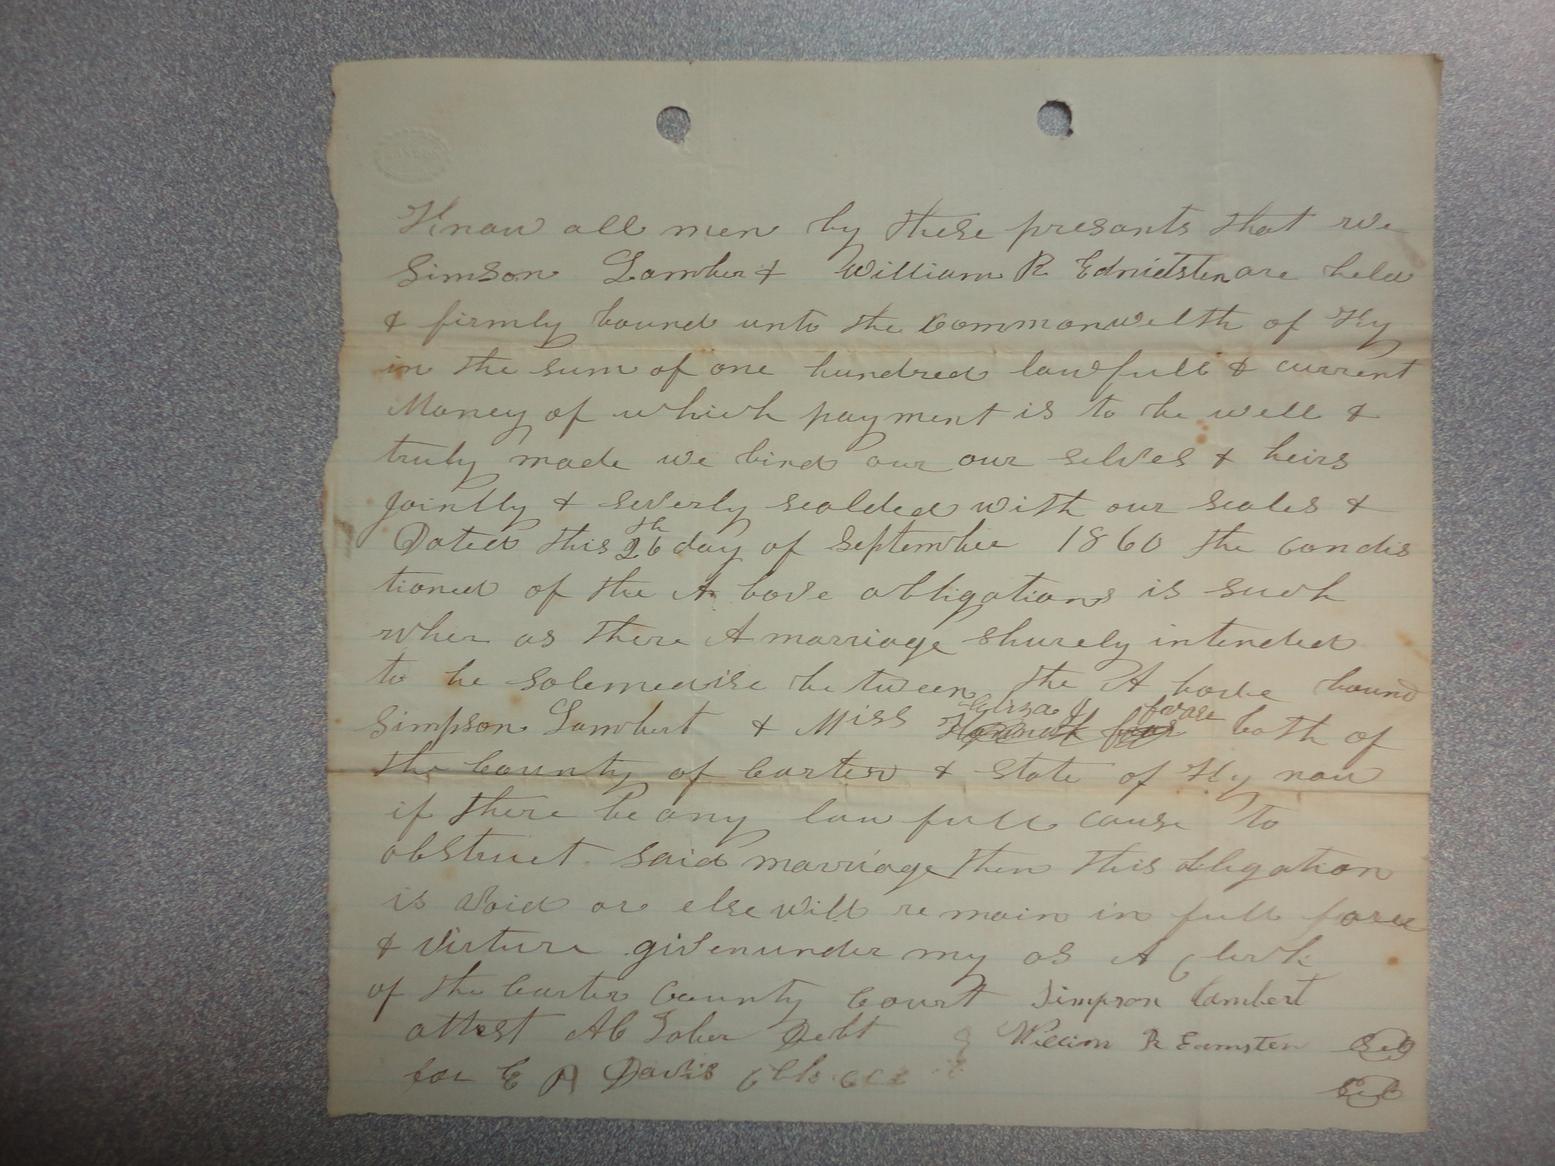 Know all men by these presants that we
Simson Lambert & William R Ednidsten are held
& firmly bound unto the Commonwelth of Ky
in the sum of one hundred lawfull & current
Money of which payment is to be well &
truly made we bind our our selves & heirs
Jointly & severly sealded with our seales &
Dated this 26th day of September 1860 the condis
tioned of the A bove obligations is such
wher as there A marriage shurely intended
to be solemedise be tween the A bove bound
Simpson Lambert & Miss both of
the County of Carter & State of Ky now
if there be any law full cause To
obstruct said marriage then this obligation
is void or else will re main in full force
& virture given under my as A Clerk
of the Carter County Court Simpson Lambert
attest AC Debt William R Eamsten
for E A Davis Clk